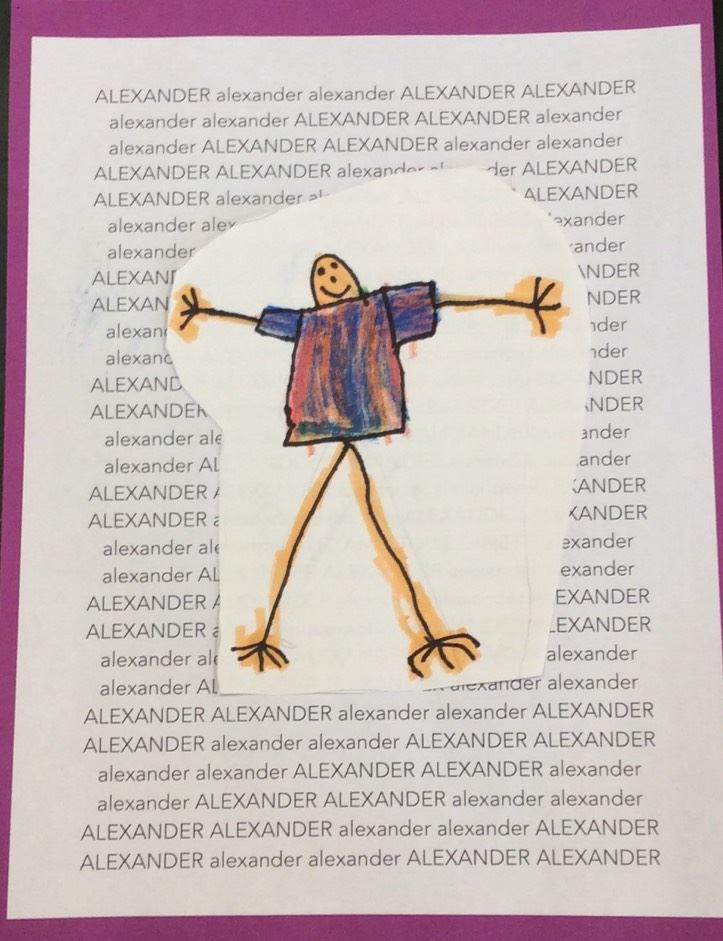 ALEXANDER alexander alexander ALEXANDER ALEXANDER
alexander alexander ALEXANDER ALEXANDER alexander
alexander ALEXANDER ALEXANDER alexander alexander
ALEXANDER ALEXANDER alexander al der ALEXANDER
ALEXANDER alexander al ALEXANDER
alexander alex exander
alexander xander
ALEXAN ANDER
ALEXAN NDER
alexan nder
alexan nder
ALEXAND NDER
ALEXANDER ANDER
alexander ale ander
alexander AL ander
ALEXANDER A XANDER
ALEXANDER a XANDER
alexander ale exander
alexander AL exander
ALEXANDER A EXANDER
ALEXANDER a LEXANDER
alexander ale alexander
alexander AL alexander alexander
ALEXANDER ALEXANDER alexander alexander ALEXANDER
ALEXANDER alexander alexander ALEXANDER ALEXANDER
alexander alexander ALEXANDER ALEXANDER alexander
alexander ALEXANDER ALEXANDER alexander alexander
ALEXANDER ALEXANDER alexander alexander ALEXANDER
ALEXANDER alexander alexander ALEXANDER ALEXANDER